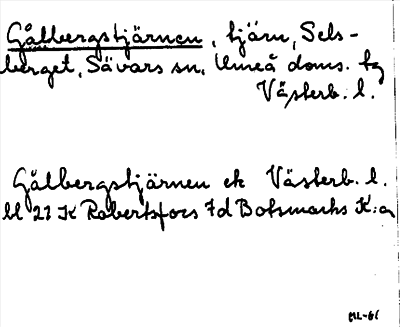 Gålbergstjärnen, tjärn, Sels-
berget, Sävars sn, Umeå doms. tg
Västerb. l.
Gålbergstjärnen ek Västerb. l.
bl 21 K Robertsfors 7d Botsmarks K:a